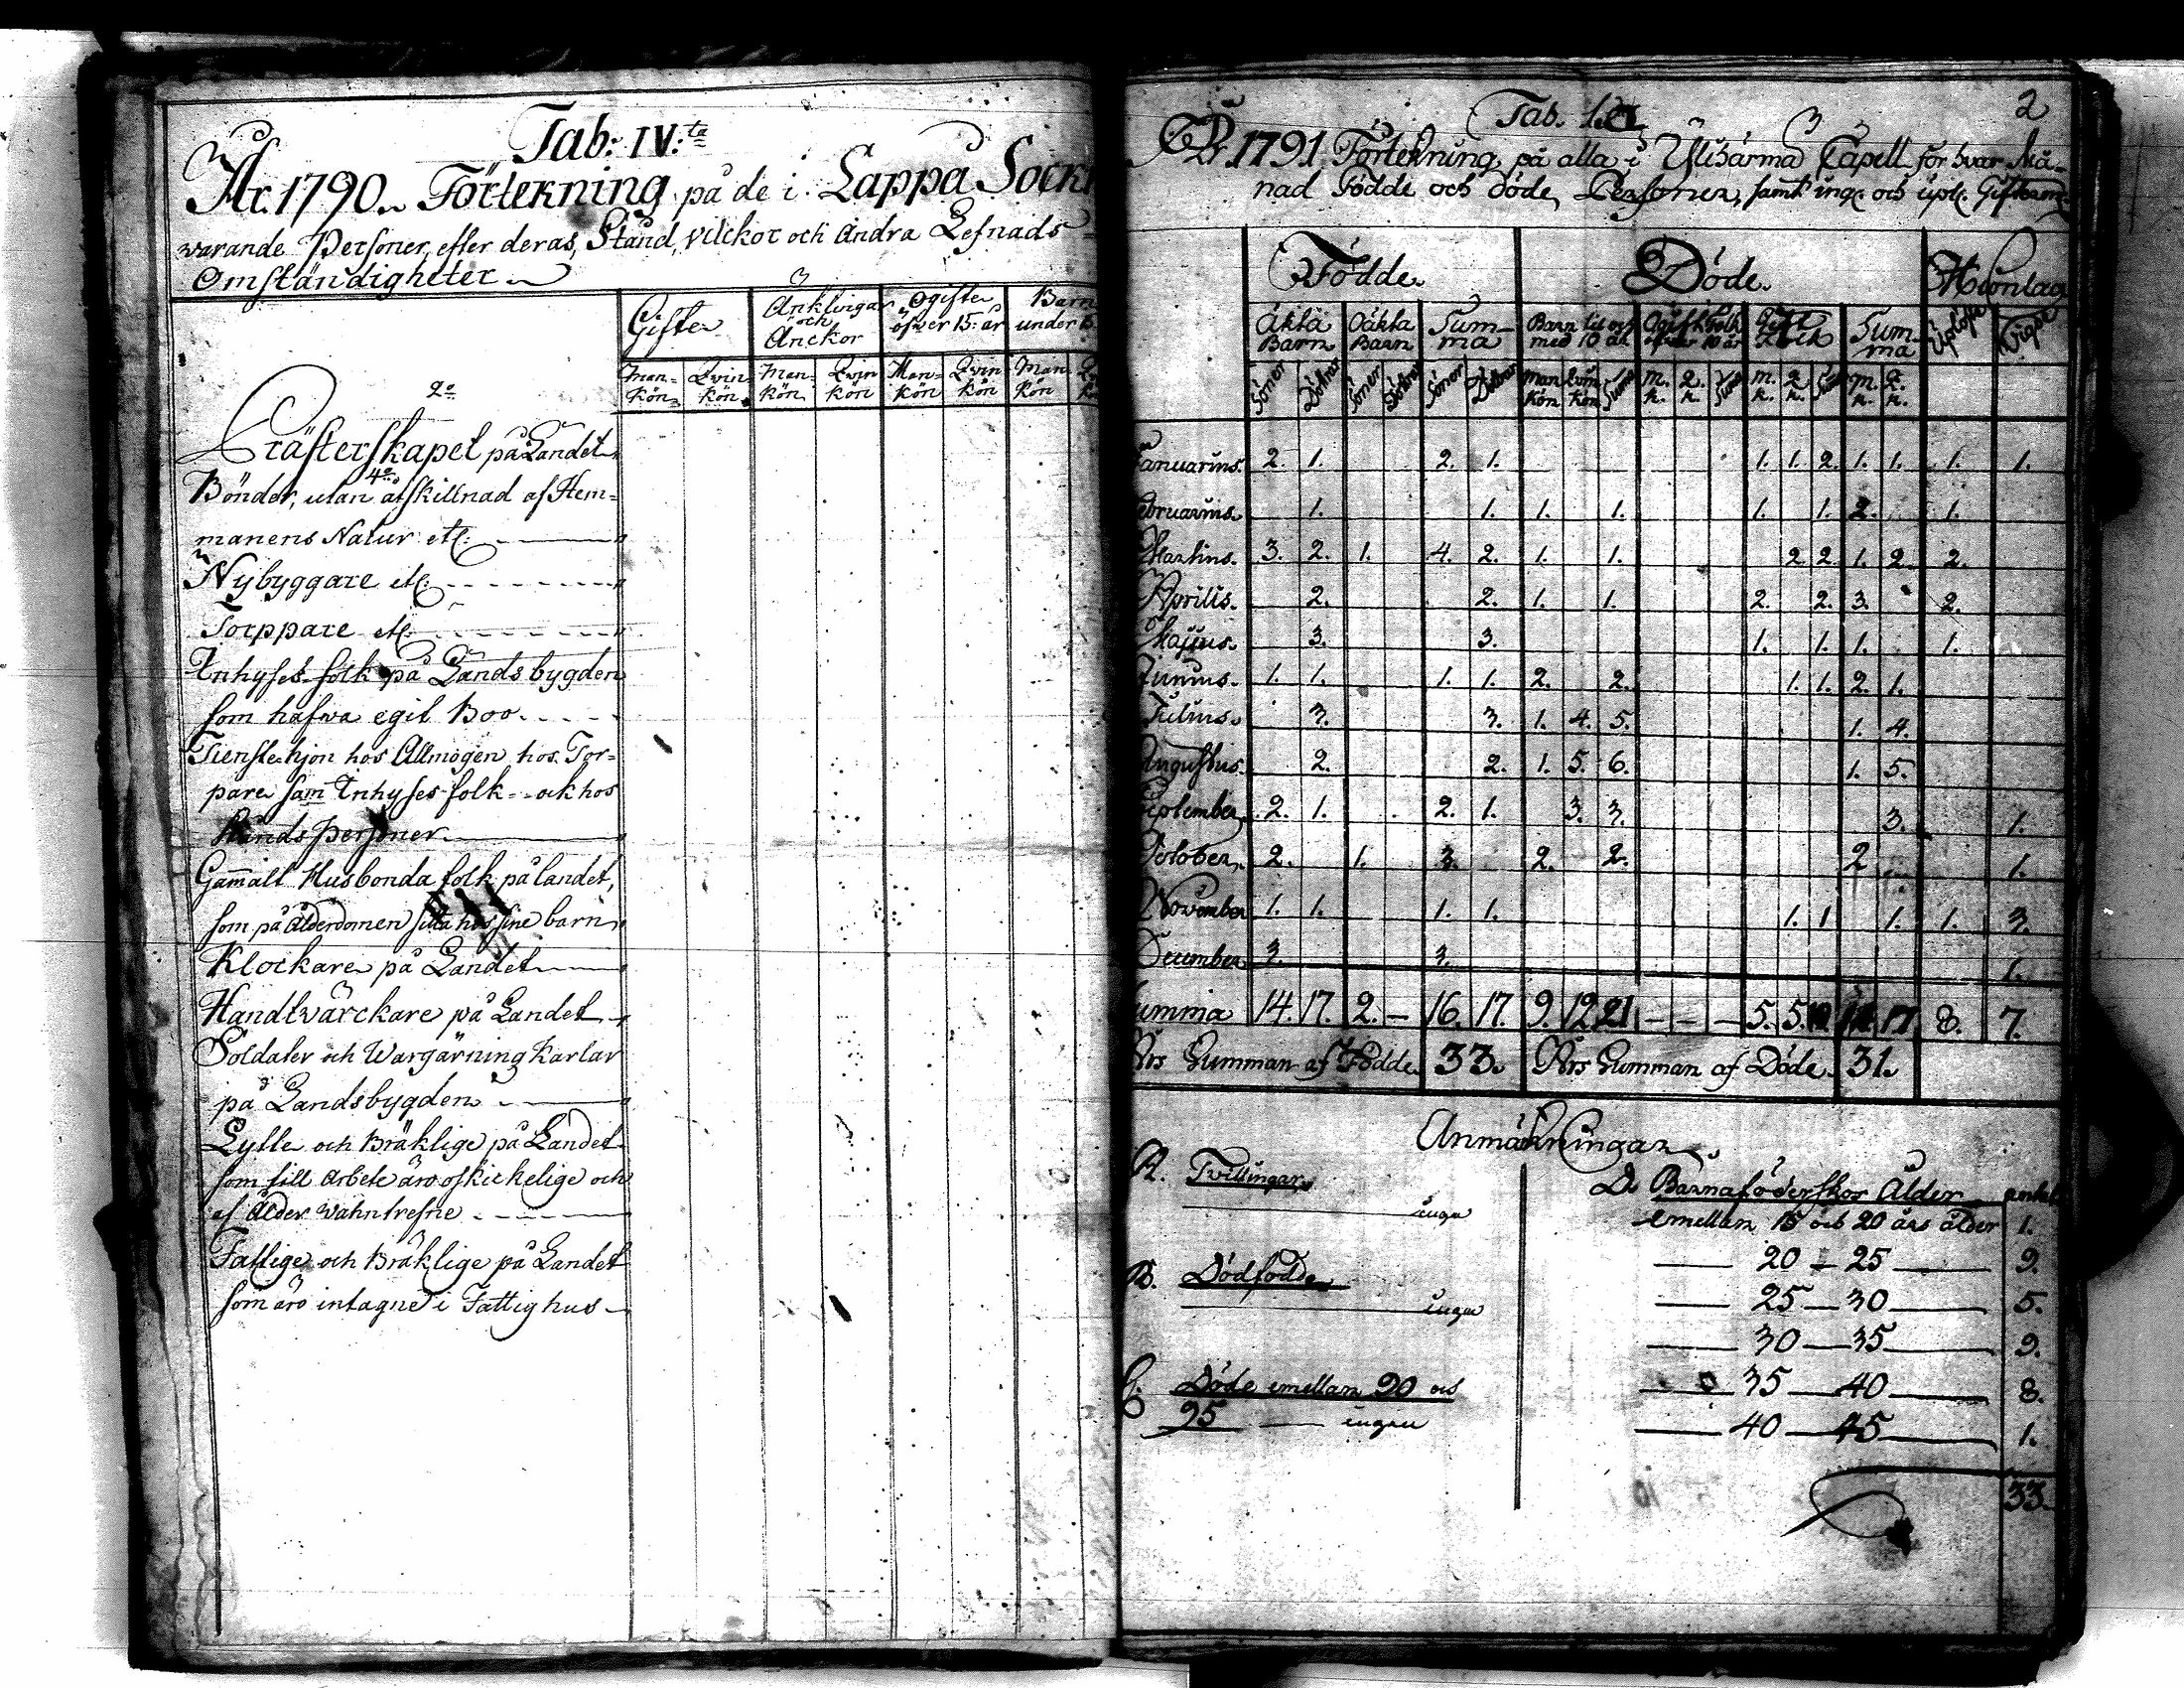 Tab: IV:ta
År. 1790. Förtekning på de i Lappa Sock
warande Personer, efter deras, Stånd, vilckor och andra Lefnads
Omständigheter
Gifte
Ancklingar och Änckor
Ogifte öfver 15: år
Barn under 15
Man-kön Qvin kön Man kön Qvin kön Man-kön Qvin kön Man kön
2o
Prästerskapet på Landet
4o
Bönder, utan åtskillnad af Hem=
manens Natur etc:
Nybyggare etc:
Torppare etc.
Inhyses folk på Landsbygden
som hafva egit Boo
Tienstehjon hos Allmogen, hos Tor=
pare samt Inhyses folk - och hos
Stånds personer
Gammalt Husbonda folk på landet,
som på ålderdomen sitta hos sine barn
Klockare på Landet
Handtvärckare på Landet
Soldater och Wargärning Karlar
på Landsbygden
Lytte och Bräklige på Landet
som till arbete äro oskickelige och
af Ålder wahnfrefne
Fattige och Bräklige på Landet
som äro intagne i Fattighus
2
Tab. 1.
År 1791 Förtekning på alla i Ylihärmä Capell för hvar Må-
nad Födde och döde Personer, samt ing. och uplt. Gifterm
Födde. Döde. Hionlag
Äkta Barn Oäkta Barn Sum-ma Barn til och med 10 år Ogift folk öfver 10 år Gift folk Sum-ma Uplöste Vigde
Söner Döttrar Söner Döttrar Söner Döttrar Man kön Qvin kön Sum m. k. q. k. Sum m. k. q. k. Sum m. k. q. k.
Januarius. 2. 1. 2. 1. 1. 1. 2. 1. 1. 1. 1.
Februarius. 1. 1. 1. 1. 1. 1. 2. 1.
Martius. 3. 2. 1. 4. 2. 1. 1. 2 2. 1. 2. 2.
Aprilis. 2. 2. 1. 1. 2. 2. 3. 2.
Majus. 3. 3. 1. 1. 1. 1.
Junius. 1. 1. 1. 1. 2. 2. 1. 1. 2. 1.
Julius. 3. 3. 1. 4. 5. 1. 4.
Augustus. 2. 2. 1. 5. 6. 1. 5.
September. 2. 1. 2. 1. 3. 3. 3. 1.
October. 2. 1. 3. 2. 2. 2 1.
November 1. 1. 1. 1. 1. 1 1. 1. 3.
December 3. 3. 1.
Summa 14. 17. 2. - 16. 17. 9. 12 21 - - - 5. 5. 10. 17 8. 7.
Års Summan af Födde. 33. Års Summan af Döde. 31.
Anmärkningar
A. Tvillingar
inga
B. Dödfödde
inga
C. Döde emellan 90 och
95 ingen
D. Barnaföderskor Ålder antal
emellan 15 och 20 års ålder 1.
20 - 25 9.
25 - 30 5.
30 - 35 9.
35 - 40 8.
40 - 45 1.
33.